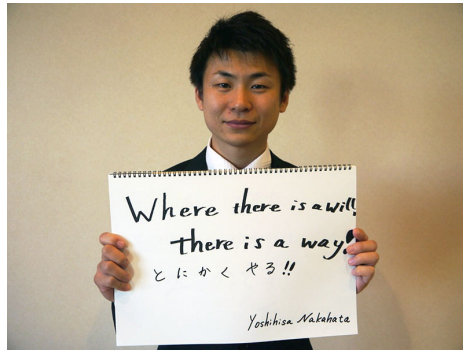 Where there is a will!
there is a way!
とにかくやる!!
Yoshihisa Nakahata